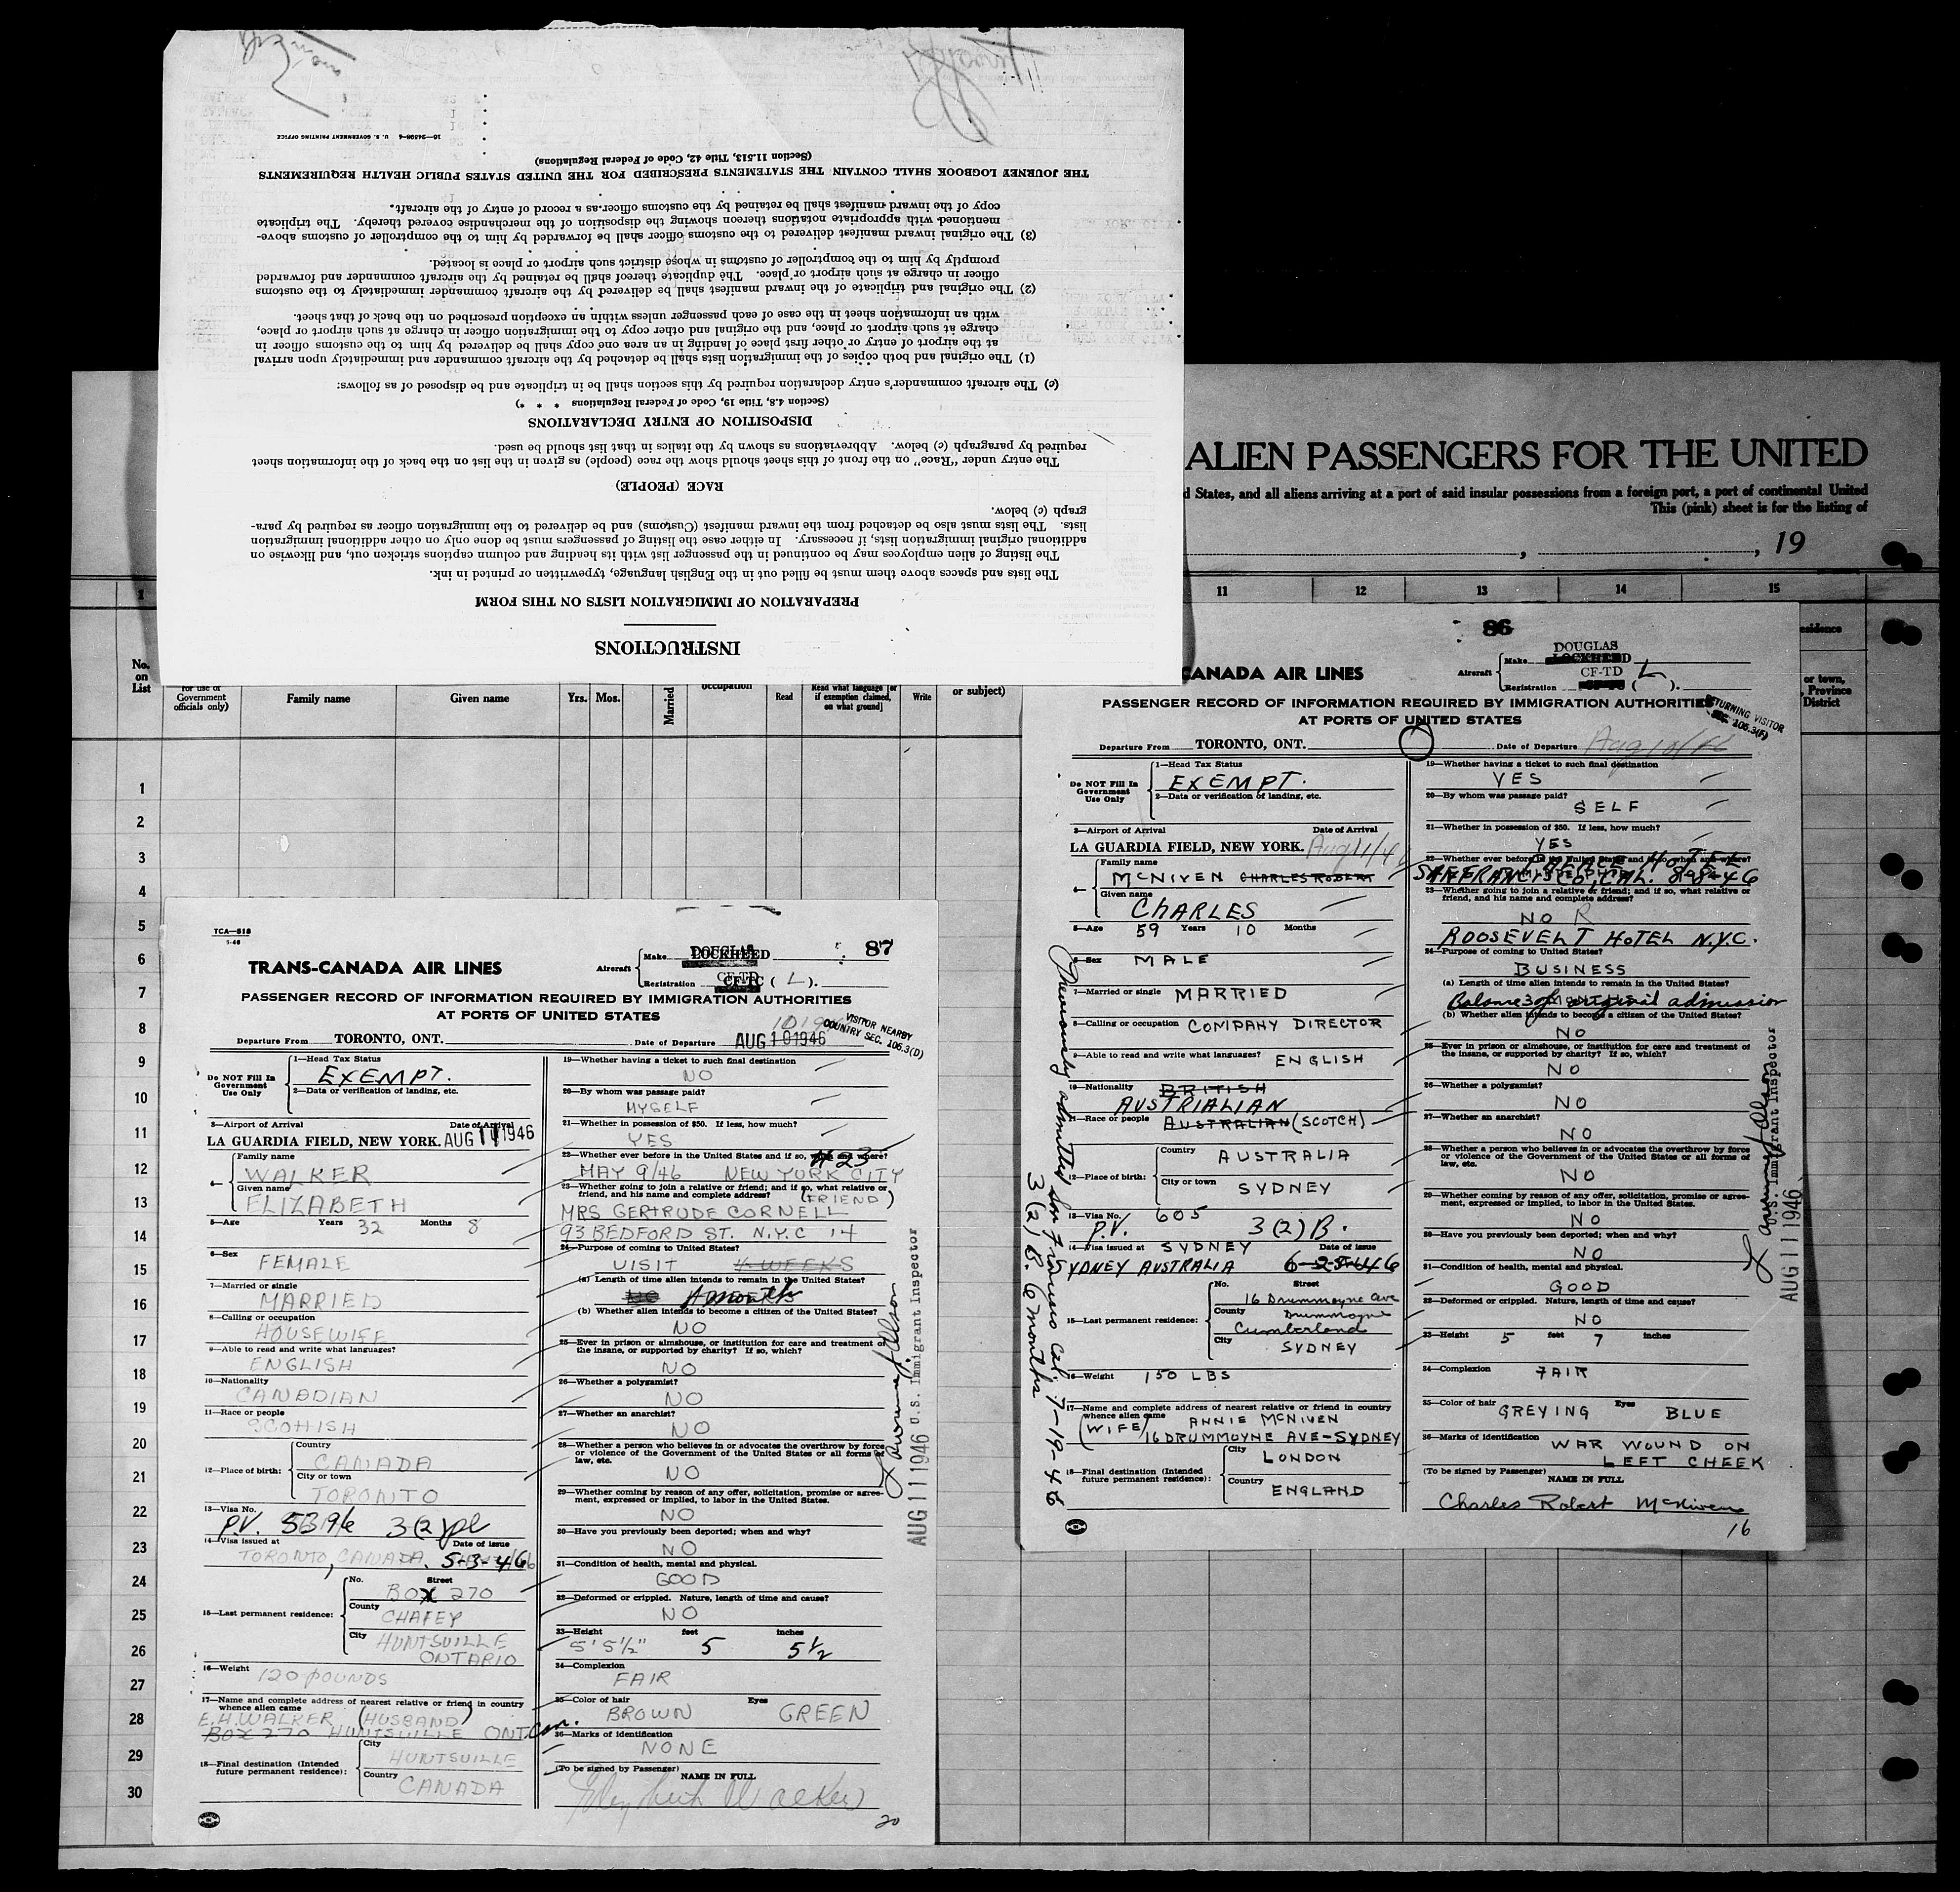 INSTRUCTIONS
PREPARATION OF IMMIGRATION LISTS ON THIS FORM
The lists and spaces above them must be filled out in the English language, typewritten or printed in ink.
The listing of alien employees may be continued in the passenger list with its heading and column captions stricken out, and likewise on
additional original immigration lists, if necessary. In either case the listing of passengers must be done only on other additional immigration
lists. The lists must also be detached from the inward manifest (Customs) and be delivered to the immigration officer as required by para-
graph (c) below.
RACE (PEOPLE)
The entry under "Race" on the front of this sheet should show the race (people) as given in the list on the back of the information sheet
required by paragraph (c) below. Abbreviations as shown by the italics in that list should be used.
DISPOSITION OF ENTRY DECLARATIONS
(Section 4.8, Title 19, Code of Federal Regulations * * *)
(c) The aircraft commander's entry declaration required by this section shall be in triplicate and be disposed of as follows:
(1) The original and both copies of the immigration lists shall be detached by the aircraft commander and immediately upon arrival
at the airport of entry or other first place of landing in an area one copy shall be delivered by him to the customs officer in
charge at such airport or place, and the original and other copy to the immigration officer in charge at such airport or place,
with an information sheet in the case of each passenger unless within an exception prescribed on the back of that sheet.
(2) The original and triplicate of the inward manifest shall be delivered by the aircraft commander immediately to the customs
officer in charge at such airport or place. The duplicate thereof shall be retained by the aircraft commander and forwarded
promptly by him to the comptroller of customs in whose district such airport or place is located.
(3) The original inward manifest delivered to the customs officer shall be forwarded by him to the comptroller of customs above-
mentioned with appropriate notations thereon showing the disposition of the merchandise covered thereby. The triplicate
copy of the inward manifest shall be retained by the customs officer as a record of entry of the aircraft.
THE JOURNEY LOGBOOK SHALL CONTAIN THE STATEMENTS PRESCRIBED FOR THE UNITED STATES PUBLIC HEALTH REQUIREMENTS
(Section 11.513, Title 42, Code of Federal Regulations)
16—24598-4 U. S. GOVERNMENT PRINTING OFFICE
ALIEN PASSENGERS FOR THE UNITED
d States, and all aliens arriving at a port of said insular possessions from a foreign port, a port of continental United
This (pink) sheet is for the listing of
, , 19
1 11 12 13 14 15
No.
on
List
for use of
Government
officials only)
Family name
Given name
Yrs. Mos.
Married
occupation
Read
Read what language [or
if exemption claimed,
on what ground]
Write
or subject)
esidence
or town,
, Province
District
1
2
3
4
5
6
7
8
9
10
11
12
13
14
15
16
17
18
19
20
21
22
23
24
25
26
27
28
29
30
86
CANADA AIR LINES
Aircraft
Make DOUGLAS
LOCKHEED
Registration CF-TD ( L ).
PASSENGER RECORD OF INFORMATION REQUIRED BY IMMIGRATION AUTHORITIES
AT PORTS OF UNITED STATES
TURNING VISITOR
SEC. 106.3(F)
Departure From TORONTO, ONT. Date of Departure Aug 10/46
Do NOT Fill In
Government
Use Only
1—Head Tax Status
EXEMPT.
2—Data or verification of landing, etc.
3—Airport of Arrival Date of Arrival
LA GUARDIA FIELD, NEW YORK. Aug 11/46
4—
Family name
McNIVEN CHARLES ROBERT
Given name
CHARLES
5—Age 59 Years 10 Months
6—Sex MALE
7—Married or single MARRIED
8—Calling or occupation COMPANY DIRECTOR
9—Able to read and write what languages? ENGLISH
10—Nationality BRITISH
AUSTRIALIAN
11—Race or people AUSTRALIAN (SCOTCH)
12—Place of birth:
Country AUSTRALIA
City or town SYDNEY
13—Visa No. 605
P.V. 3(2)B.
14—Visa issued at SYDNEY Date of issue
YDNEY AUSTRALIA 6-25-46
15—Last permanent residence:
No. Street
16 Drummoyne Ave
Drummoyne
County Cumberland
City SYDNEY
16—Weight 150 LBS
17—Name and complete address of nearest relative or friend in country
whence alien came ANNIE McNIVEN
(WIFE) 16 DRUMMOYNE AVE-SYDNEY
18—Final destination (Intended
future permanent residence):
City LONDON
Country ENGLAND
19—Whether having a ticket to such final destination
YES
20—By whom was passage paid?
SELF
21—Whether in possession of $50. If less, how much?
YES
22—Whether ever before in the United States and if so, when and where?
PALACE HOTEL
SAN FRANCISCO, CAL. 8-8-46
23—Whether going to join a relative or friend; and if so, what relative or
friend, and his name and complete address?
NO R
ROOSEVELT HOTEL N.Y.C.
24—Purpose of coming to United States?
BUSINESS
(a) Length of time alien intends to remain in the United States?
Balance of original admission
(b) Whether alien intends to become a citizen of the United States?
NO
25—Ever in prison or almshouse, or institution for care and treatment of
the insane, or supported by charity? If so, which?
NO
26—Whether a polygamist?
NO
27—Whether an anarchist?
NO
28—Whether a person who believes in or advocates the overthrow by force
or violence of the Government of the United States or all forms of
law, etc.
NO
29—Whether coming by reason of any offer, solicitation, promise or agree-
ment, expressed or implied, to labor in the United States.
NO
30—Have you previously been deported; when and why?
NO
31—Condition of health, mental and physical.
GOOD
32—Deformed or crippled. Nature, length of time and cause?
NO
33—Height 5 feet 7 inches
34—Complexion
FAIR
35—Color of hair GREYING Eyes BLUE
36—Marks of identification WAR WOUND ON
LEFT CHEEK
(To be signed by Passenger) NAME IN FULL
Charles Robert McNiven
16
Previously admitted San Francisco Cal, 7-19-46
3(2) B. 6 months
U.S. Immigrant Inspector
AUG 11 1946
TCA—518
1-46
TRANS-CANADA AIR LINES
Aircraft
Make DOUGLAS
LOCKHEED
Registration CF-TD
CF-TC ( L ).
87
PASSENGER RECORD OF INFORMATION REQUIRED BY IMMIGRATION AUTHORITIES
AT PORTS OF UNITED STATES
VISITOR NEARBY
COUNTRY SEC. 106.3(D)
Departure From TORONTO, ONT. Date of Departure AUG 10 1946
Do NOT Fill In
Government
Use Only
1—Head Tax Status
EXEMPT.
2—Data or verification of landing, etc.
3—Airport of Arrival Date of Arrival
LA GUARDIA FIELD, NEW YORK. AUG 11 1946
4—
Family name
WALKER
Given name
ELIZABETH
5—Age Years 32 Months 8
6—Sex
FEMALE
7—Married or single
MARRIED
8—Calling or occupation
HOUSEWIFE
9—Able to read and write what languages?
ENGLISH
10—Nationality
CANADIAN
11—Race or people
SCOTTISH
12—Place of birth:
Country
CANADA
City or town
TORONTO
13—Visa No.
P.V. 53196 3(2)
14—Visa issued at Date of issue
TORONTO, CANADA, 5-3-46
15—Last permanent residence:
No. Street
BOX 270
County
CHAFEY
City HUNTSVILLE
ONTARIO
16—Weight
120 POUNDS
17—Name and complete address of nearest relative or friend in country
whence alien came
E.H. WALKER (HUSBAND)
BOX 270 HUNTSVILLE ONT. Can.
18—Final destination (Intended
future permanent residence):
City
HUNTSVILLE
Country
CANADA
19—Whether having a ticket to such final destination
NO
20—By whom was passage paid?
MYSELF
21—Whether in possession of $50. If less, how much?
YES
22—Whether ever before in the United States and if so, when and where?
#23
MAY 9/46 NEW YORK CITY
23—Whether going to join a relative or friend; and if so, what relative or
friend, and his name and complete address? (FRIEND)
MRS GERTRUDE CORNELL
93 BEDFORD ST. N.Y.C 14
24—Purpose of coming to United States?
VISIT 4 WEEKS
(a) Length of time alien intends to remain in the United States?
NO 1 month
(b) Whether alien intends to become a citizen of the United States?
NO
25—Ever in prison or almshouse, or institution for care and treatment of
the insane, or supported by charity? If so, which?
NO
26—Whether a polygamist?
NO
27—Whether an anarchist?
NO
28—Whether a person who believes in or advocates the overthrow by force
or violence of the Government of the United States or all forms of
law, etc.
NO
29—Whether coming by reason of any offer, solicitation, promise or agree-
ment, expressed or implied, to labor in the United States.
NO
30—Have you previously been deported; when and why?
NO
31—Condition of health, mental and physical.
GOOD
32—Deformed or crippled. Nature, length of time and cause?
NO
33—Height feet inches
5' 5½" 5 5½
34—Complexion
FAIR
35—Color of hair Eyes
BROWN GREEN
36—Marks of identification
NONE
(To be signed by Passenger) NAME IN FULL
Elizabeth Walker
20
U.S. Immigrant Inspector
AUG 11 1946